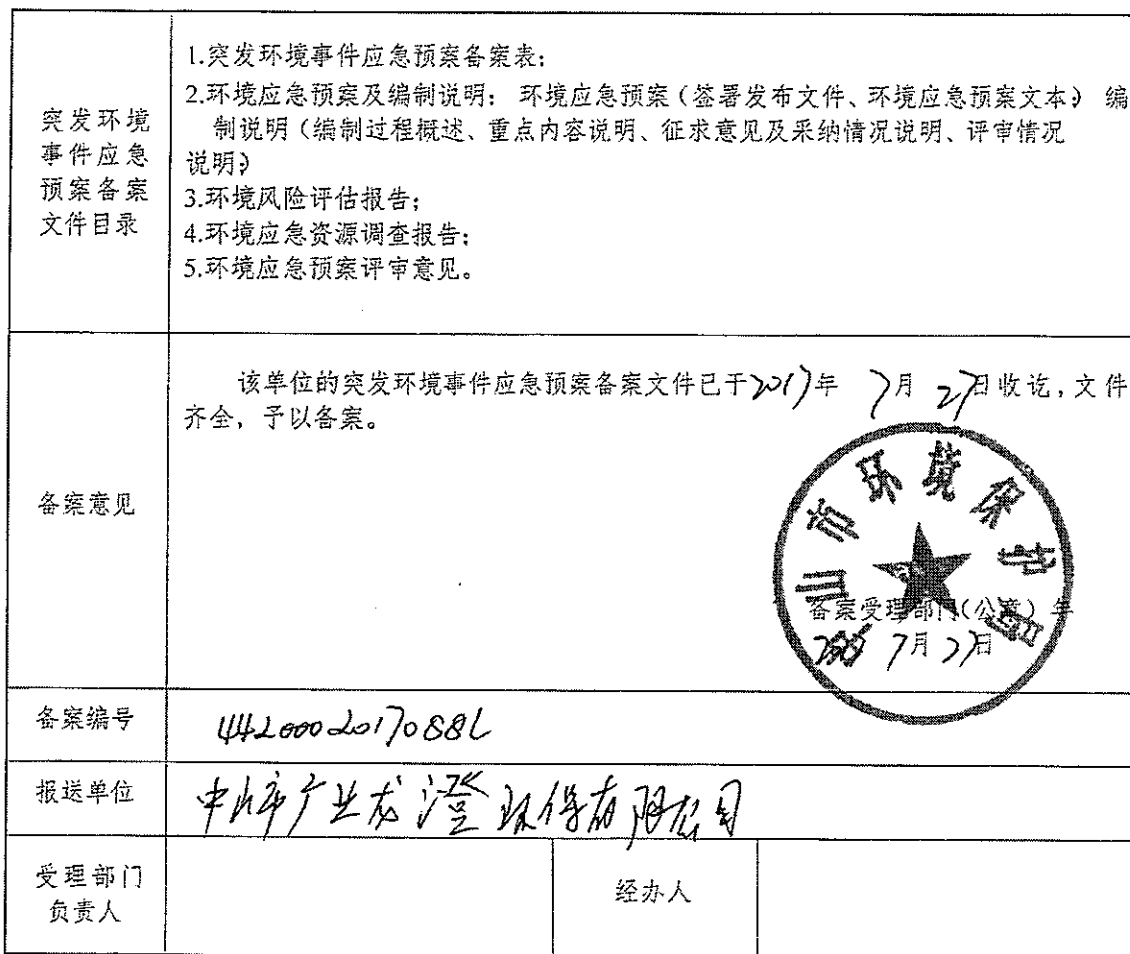 突发环境
事件应急
预案备案
文件目录
1.突发环境事件应急预案备案表;
2.环境应急预案及编制说明: 环境应急预案(签署发布文件、环境应急预案文本) 编
制说明(编制过程概述、重点内容说明、征求意见及采纳情况说明、评审情况
说明)
3.环境风险评估报告;
4.环境应急资源调查报告;
5.环境应急预案评审意见。
备案意见
该单位的突发环境事件应急预案备案文件已于2017年 7月 27日收讫,文件
齐全,予以备案。
山市环境保护局
备案受理部门(公章) 年
7月27日
备案编号
4420002017088L
报送单位
中山市广业龙澄环保有限公司
受理部门
负责人
经办人